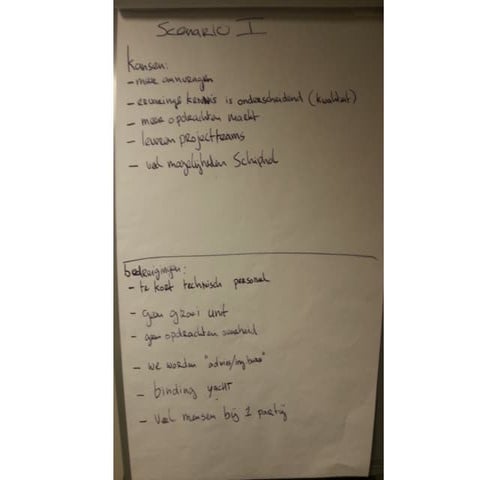 Scenario I
kansen:
- meer aanvragen
- ervaring & kennis is onderscheidend (kwaliteit)
- meer opdrachten markt
- leveren projectteams
- veel mogelijkheden Schiphol
bedreigingen:
- te kort technisch personeel
- geen groei unit
- geen opdrachten overheid
- we worden "advies/ing bureau"
- binding yacht
- Veel mensen bij 1 partij